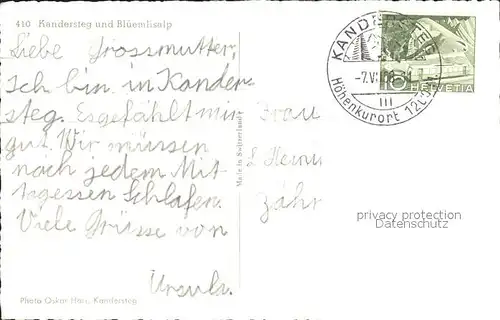 410 Kandersteg und Blüemlisalp
Liebe Grossmutter,
Ich bin in Kander-
steg. Es gefählt mir
gut. Wir müssen
nach jedem Mit-
tagessen Schlafen.
Viele Grüsse von
Ursula.
Photo Oskar Hari, Kandersteg
Made in Switzerland
KANDERSTEG
-7.V
Höhenkurort 1200
10 HELVETIA
Frau
Zähr
privacy protection
Datenschutz